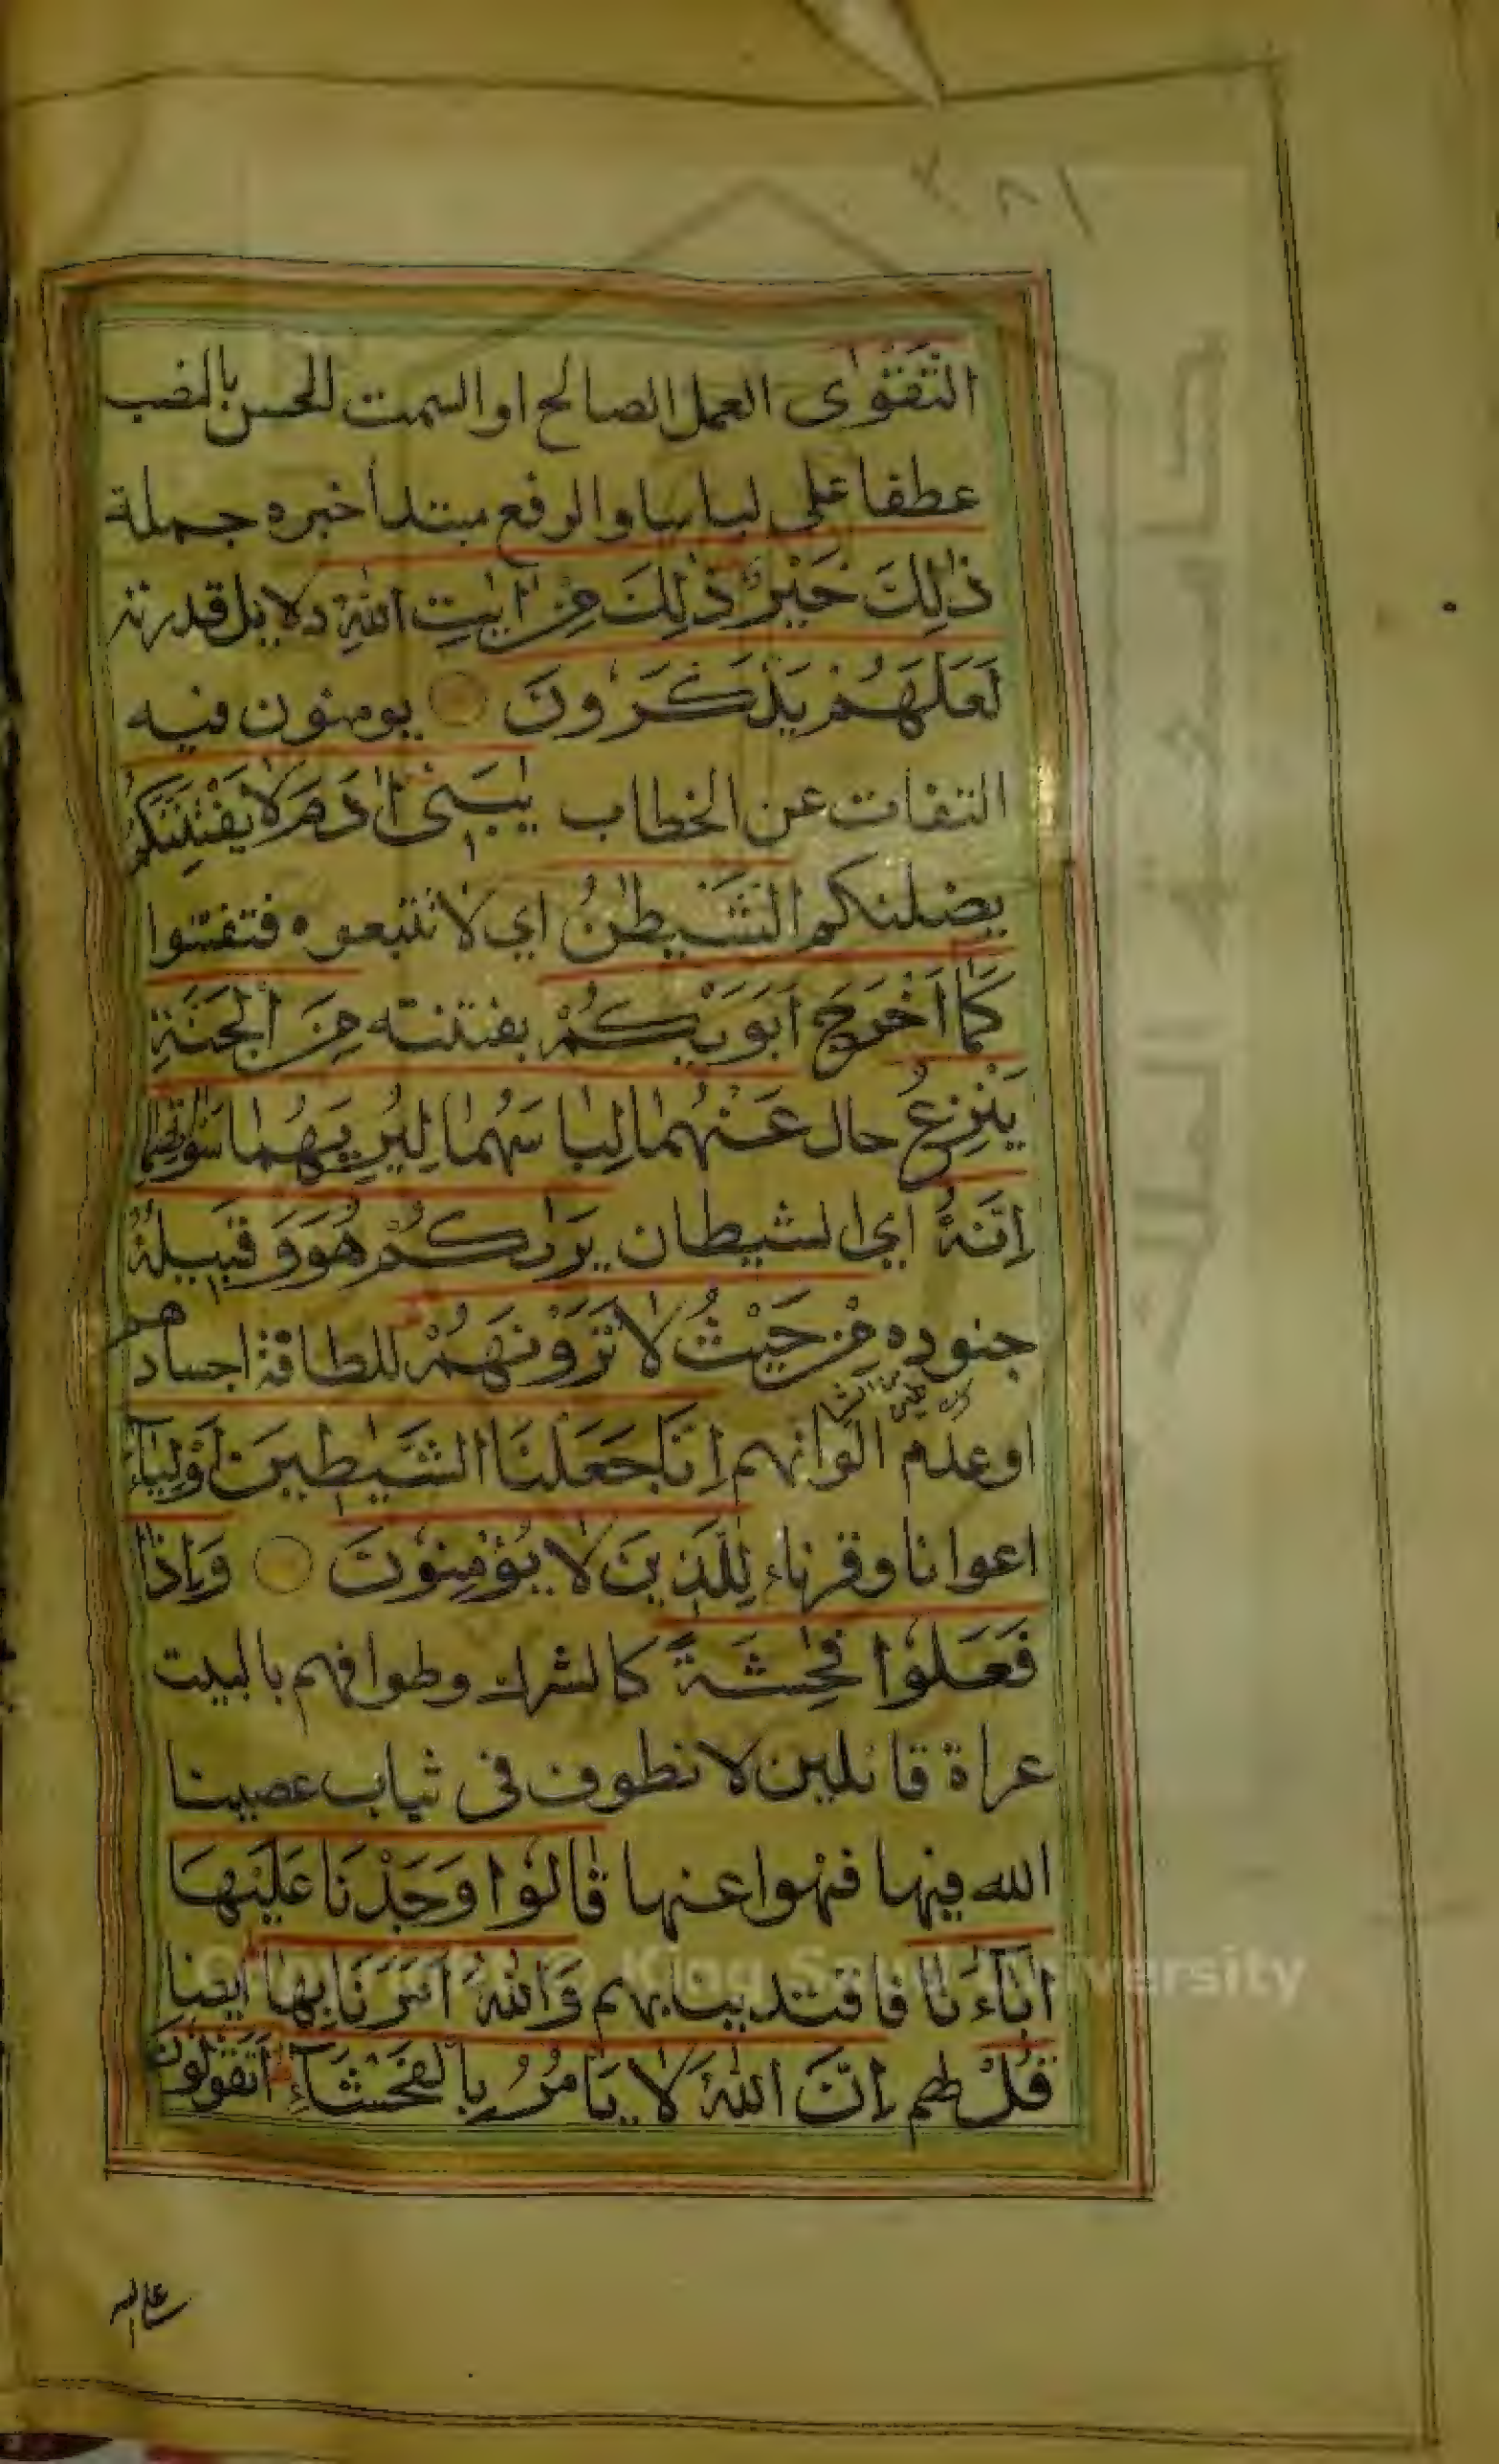 التَّقْوٰى العمل الصالح او السمت الحسن بالنصب
عطفا على لباسا والرفع مبتدأ خبره جملة
ذٰلِكَ خَيْرٌ ذٰلِكَ مِنْ اٰيٰتِ اللّٰهِ دلايل قدرته
لَعَلَّهُمْ يَذَّكَّرُونَ يومنون فيه
التفات عن الخطاب يٰبَنِى اٰدَمَ لَا يَفْتِنَنَّكُمُ
يضلنكم الشَّيْطٰنُ اي لا تتبعوه فتفتنوا
كَمَا اَخْرَجَ اَبَوَيْكُمْ بفتنته مِنَ الْجَنَّةِ
يَنْزِعُ حال عَنْهُمَا لِبَاسَهُمَا لِيُرِيَهُمَا سَوْاٰتِهِمَا
اِنَّهُ اي الشيطان يَرٰىكُمْ هُوَ وَقَبِيلُهُ
جنوده مِنْ حَيْثُ لَا تَرَوْنَهُمْ للطافة اجسادهم
او عدم الوانهم اِنَّا جَعَلْنَا الشَّيٰطِينَ اَوْلِيَآءَ
اعوانا وقرناء لِلَّذِينَ لَا يُؤْمِنُونَ وَاِذَا
فَعَلُوْا فٰحِشَةً كالشرك وطوافهم بالبيت
عراة قائلين لا نطوف في ثياب عصينا
الله فيها فنهوا عنها قَالُوْا وَجَدْنَا عَلَيْهَا
اٰبَآءَنَا فاقتدينا بهم وَاللّٰهُ اَمَرَنَا بِهَا ايضا
قُلْ لهم اِنَّ اللّٰهَ لَا يَاْمُرُ بِالْفَحْشَآءِ اَتَقُولُونَ
على الله
Copyright © King Saud University